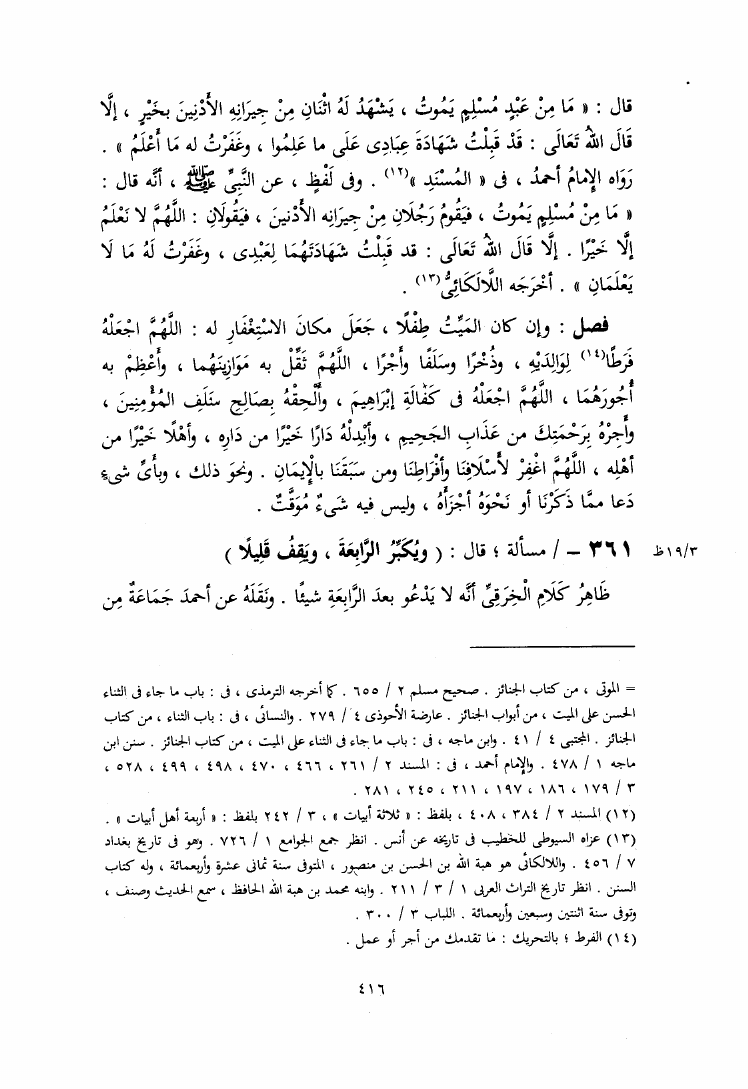 قال : « مَا مِنْ عَبْدٍ مُسْلِمٍ يَمُوتُ ، يَشْهَدُ لَهُ اثْنَانِ مِنْ جِيرَانِهِ الأَدْنِينَ بخَيْرٍ ، إلَّا
قَالَ اللهُ تَعَالَى : قَدْ قَبِلْتُ شَهَادَةَ عِبَادِى عَلَى ما عَلِمُوا ، وغَفَرْتُ له مَا أَعْلَمُ » .
رَوَاه الإِمامُ أحمدُ ، فى « المُسْنَدِ »(١٢) . وفى لَفْظٍ ، عن النَّبِيِّ ﷺ ، أنَّه قال :
« مَا مِنْ مُسْلِمٍ يَمُوتُ ، فيَقُومُ رَجُلَانِ مِنْ جِيرَانِهِ الأَدْنينَ ، فيَقُولَانِ : اللَّهُمَّ لا نَعْلَمُ
إلَّا خَيْرًا . إلَّا قَالَ اللهُ تَعَالَى : قد قَبِلْتُ شَهَادَتَهُمَا لِعَبْدِى ، وغَفَرْتُ لَهُ مَا لَا
يَعْلَمَانِ » . أخْرَجَه اللَّالَكَائِىُّ(١٣) .
فصل : وإن كان المَيِّتُ طِفْلًا ، جَعَلَ مكانَ الاسْتِغْفَارِ له : اللَّهُمَّ اجْعَلْهُ
فَرَطًا(١٤) لِوَالِدَيْهِ ، وذُخْرًا وسَلَفًا وأَجْرًا ، اللَّهُمَّ ثَقِّلْ به مَوَازِينَهُما ، وأَعْظِمْ به
أُجُورَهُمَا ، اللَّهُمَّ اجْعَلْهُ فى كَفَالَةِ إبْرَاهِيمَ ، وأَلْحِقْهُ بِصَالِحِ سَلَفِ المُؤْمِنِينَ ،
وأَجِرْهُ بِرَحْمَتِكَ من عَذَابِ الجَحِيمِ ، وأَبْدِلْهُ دَارًا خَيْرًا من دَارِه ، وأهْلًا خَيْرًا من
أهْلِه ، اللَّهُمَّ اغْفِرْ لأَسْلَافِنَا وأَفْرَاطِنَا ومن سَبَقَنَا بالْإِيمَانِ . ونحوَ ذلك ، وبأىِّ شىءٍ
دَعا ممَّا ذَكَرْنَا أو نَحْوَهُ أجْزَأَهُ ، وليس فيه شىءٌ مُوَقَّتٌ .
١٩/٣ظ ٣٦١ – / مسألة ؛ قال : ( ويُكَبِّرُ الرَّابِعَةَ ، ويَقِفُ قَلِيلًا )
ظَاهِرُ كَلَامِ الْخِرَقِىِّ أنَّه لا يَدْعُو بعدَ الرَّابِعَةِ شيئًا . ونَقَلَهُ عن أحمدَ جَمَاعَةٌ مِن
= الموتى ، من كتاب الجنائز . صحيح مسلم ٢ / ٦٥٥ . كما أخرجه الترمذى ، فى : باب ما جاء فى الثناء
الحسن على الميت ، من أبواب الجنائز . عارضة الأحوذى ٤ / ٢٧٩ . والنسائى ، فى : باب الثناء ، من كتاب
الجنائز . المجتبى ٤ / ٤١ . وابن ماجه ، فى : باب ما جاء فى الثناء على الميت ، من كتاب الجنائز . سنن ابن
ماجه ١ / ٤٧٨ . والإمام أحمد ، فى : المسند ٢ / ٢٦١ ، ٤٦٦ ، ٤٧٠ ، ٤٩٨ ، ٤٩٩ ، ٥٢٨ ،
٣ / ١٧٩ ، ١٨٦ ، ١٩٧ ، ٢١١ ، ٢٤٥ ، ٢٨١ .
(١٢) المسند ٢ / ٣٨٤ ، ٤٠٨ ، بلفظ : « ثلاثة أبيات » ، ٣ / ٢٤٢ بلفظ : « أربعة أهل أبيات » .
(١٣) عزاه السيوطى للخطيب فى تاريخه عن أنس . انظر جمع الجوامع ١ / ٧٢٦ . وهو فى تاريخ بغداد
٧ / ٤٥٦ . واللالكائى هو هبة الله بن الحسن بن منصور ، المتوفى سنة ثمانى عشرة وأربعمائة ، وله كتاب
السنن . انظر تاريخ التراث العربى ١ / ٣ / ٢١١ . وابنه محمد بن هبة الله الحافظ ، سمع الحديث وصنف ،
وتوفى سنة اثنتين وسبعين وأربعمائة . اللباب ٣ / ٣٠٠ .
(١٤) الفرط ؛ بالتحريك : ما تقدمك من أجر أو عمل .
٤١٦